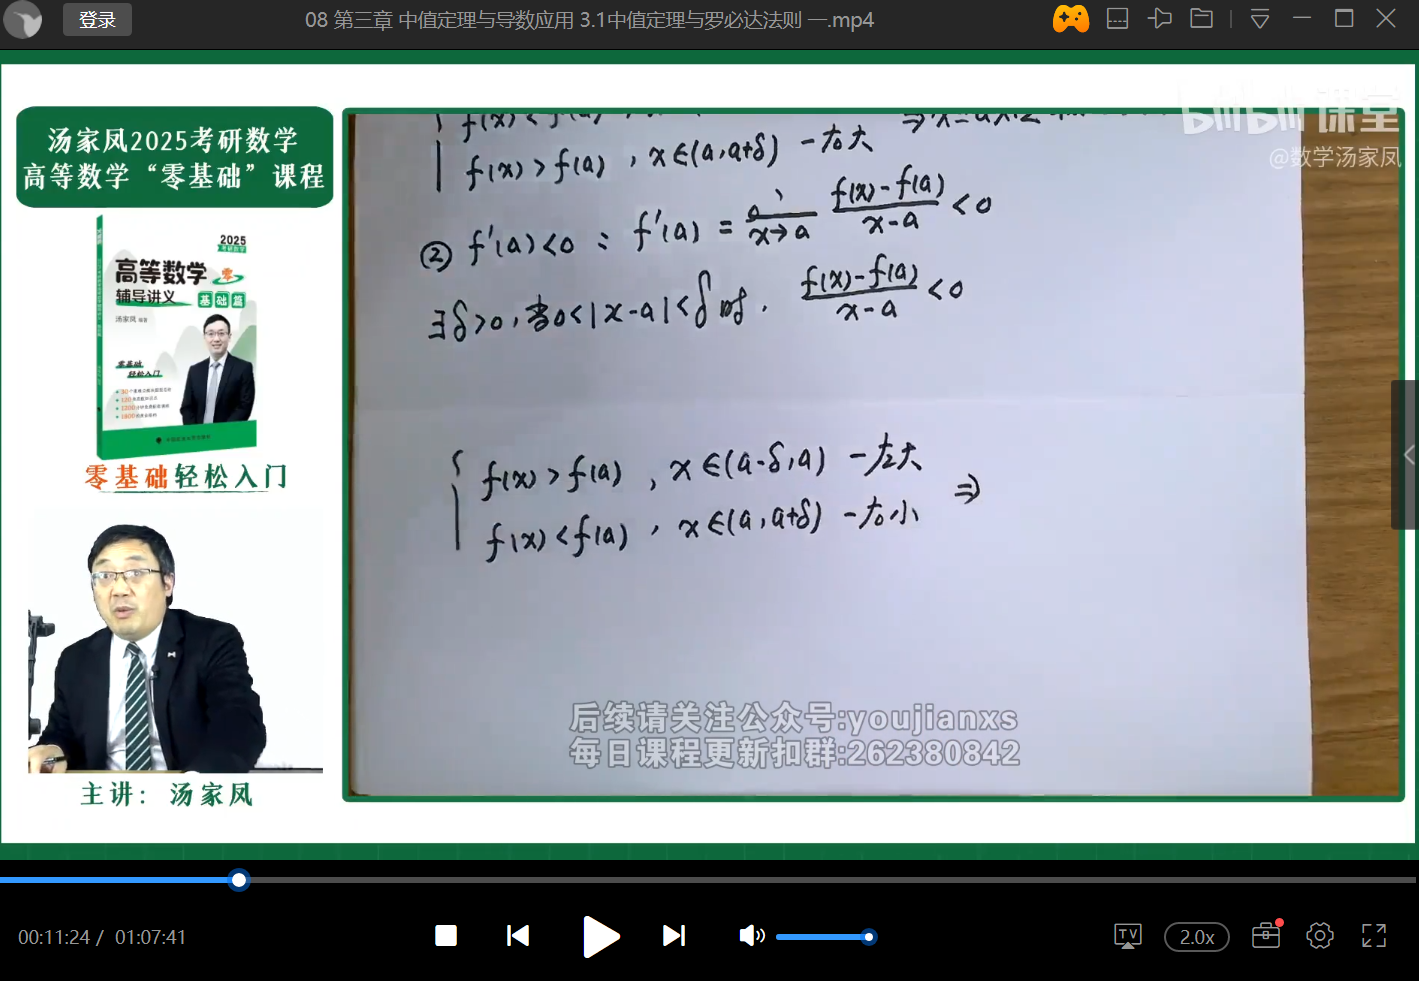 登录
08 第三章 中值定理与导数应用 3.1中值定理与罗必达法则 一.mp4
汤家凤2025考研数学
高等数学“零基础”课程
2025
高等数学 零
辅导讲义 基础篇
汤家凤
零基础
轻松入门
零基础轻松入门
主讲：汤家凤
bilibili 课堂
@数学汤家凤
f(x)<f(a)
f(x)>f(a), x∈(a,a+δ) -右大
② f'(a)<0: f'(a)= x→a f(x)-f(a)/x-a <0
∃δ>0,当0<|x-a|<δ时, f(x)-f(a)/x-a <0
{ f(x)>f(a), x∈(a-δ,a) -左大
f(x)<f(a), x∈(a,a+δ) -右小 ⇒
后续请关注公众号:youjianxs
每日课程更新扣群:262380842
00:11:24 / 01:07:41
TV
2.0x